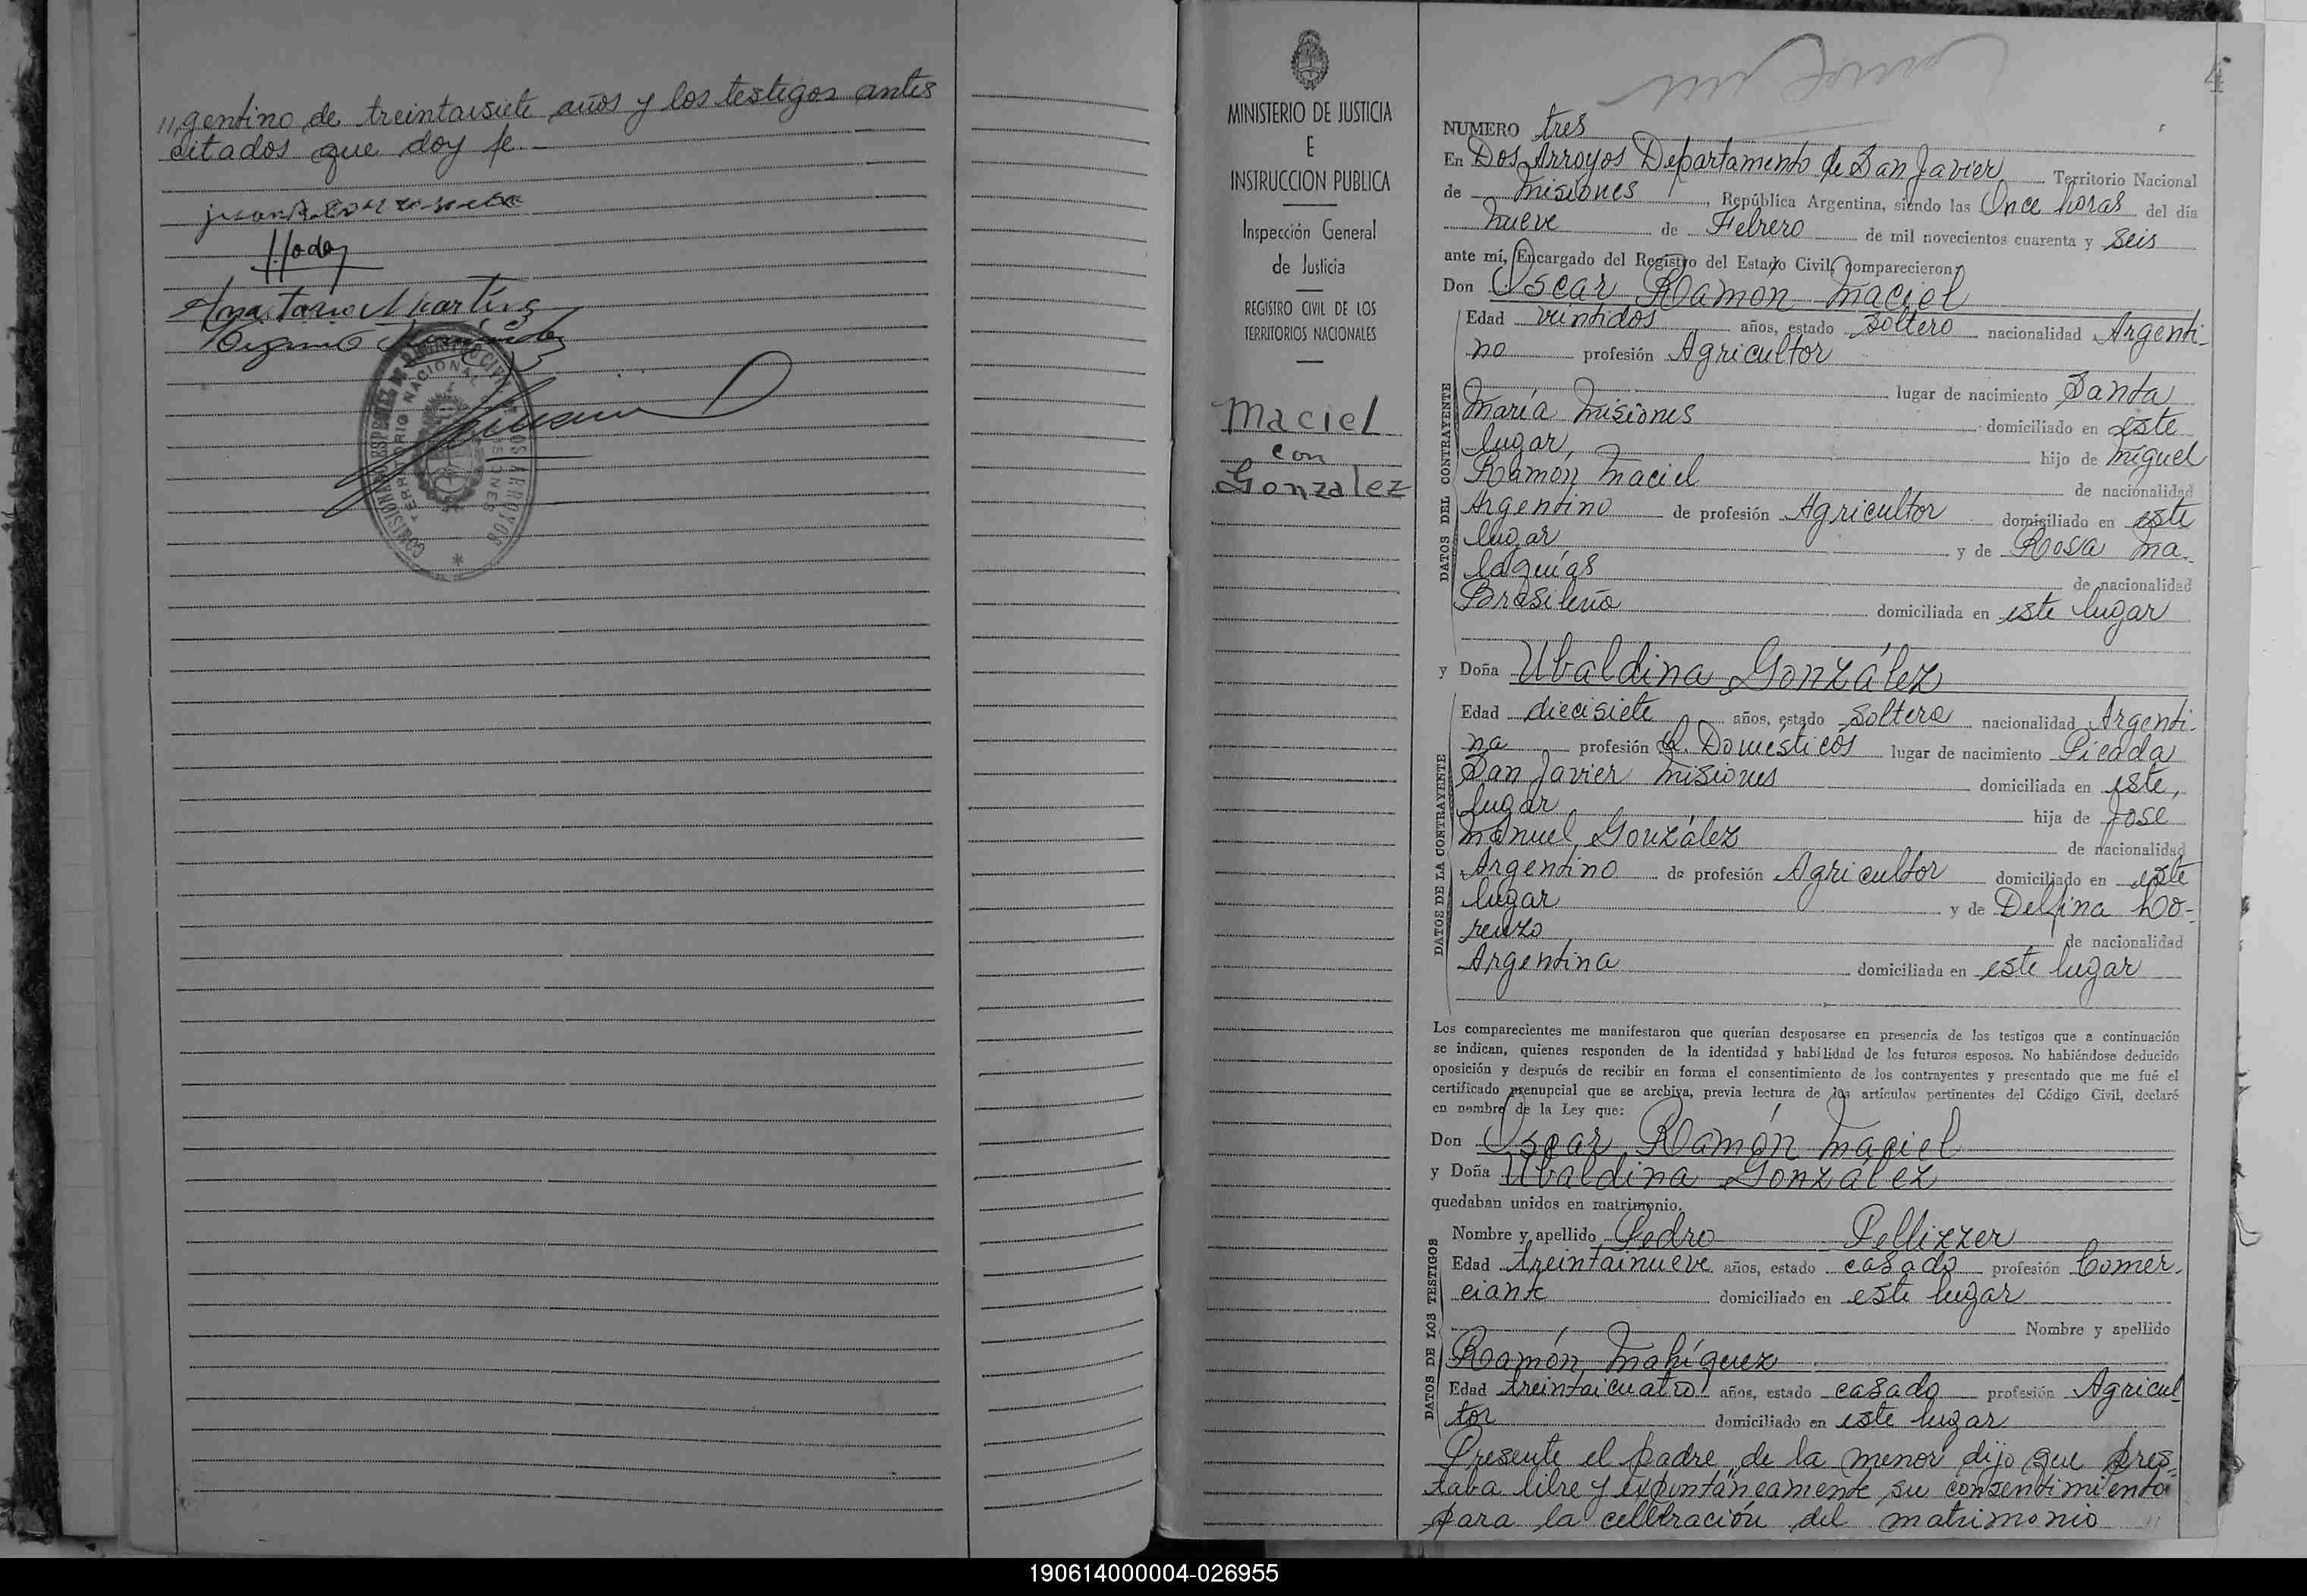 "gentino de treintaisiete años y los testigos antes
citados que doy fe.-
Anastacio Martins
4
MINISTERIO DE JUSTICIA
E
INSTRUCCION PUBLICA
Inspección General
de Justicia
REGISTRO CIVIL DE LOS
TERRITORIOS NACIONALES
Maciel
con
Gonzalez
NUMERO tres
En Dos Arroyos Departamento de San Javier Territorio Nacional
de Misiones, República Argentina, siendo las Once horas del día
nueve de Febrero de mil novecientos cuarenta y seis
ante mi, Encargado del Registro del Estado Civil, comparecieron:
Don Oscar Ramon Maciel
DATOS DEL CONTRAYENTE
Edad veintidos años, estado soltero nacionalidad Argenti-
no profesión Agricultor
lugar de nacimiento Santa
María Misiones domiciliado en este
lugar, hijo de Miguel
Ramón Maciel de nacionalidad
Argentino de profesión Agricultor domiciliado en este
lugar y de Rosa Ma-
laquías de nacionalidad
Brasileña domiciliada en este lugar
y Doña Ubaldina González
DATOS DE LA CONTRAYENTE
Edad diecisiete años, estado soltera nacionalidad Argenti-
na profesión Q. Domésticos lugar de nacimiento Picada
San Javier Misiones domiciliada en este,
lugar hija de Jose
Manuel González de nacionalidad
Argentino de profesión Agricultor domiciliado en este
lugar y de Delfina Lo-
renzo de nacionalidad
Argentina domiciliada en este lugar
Los comparecientes me manifestaron que querían desposarse en presencia de los testigos que a continuación
se indican, quienes responden de la identidad y habilidad de los futuros esposos. No habiéndose deducido
oposición y después de recibir en forma el consentimiento de los contrayentes y presentado que me fué el
certificado prenupcial que se archiva, previa lectura de los artículos pertinentes del Código Civil, declaré
en nombre de la Ley que:
Don Oscar Ramón Maciel
y Doña Ubaldina González
quedaban unidos en matrimonio.
DATOS DE LOS TESTIGOS
Nombre y apellido Pedro Pellizzer
Edad treintainueve años, estado casado profesión Comer-
ciante domiciliado en este lugar
Nombre y apellido
Ramón Mahíquez
Edad treintaicuatro años, estado casado profesión Agricul-
tor domiciliado en este lugar
Presente el padre de la menor dijo que pres-
taba libre y expontáneamente su consentimiento
para la celebración del matrimonio "
190614000004-026955